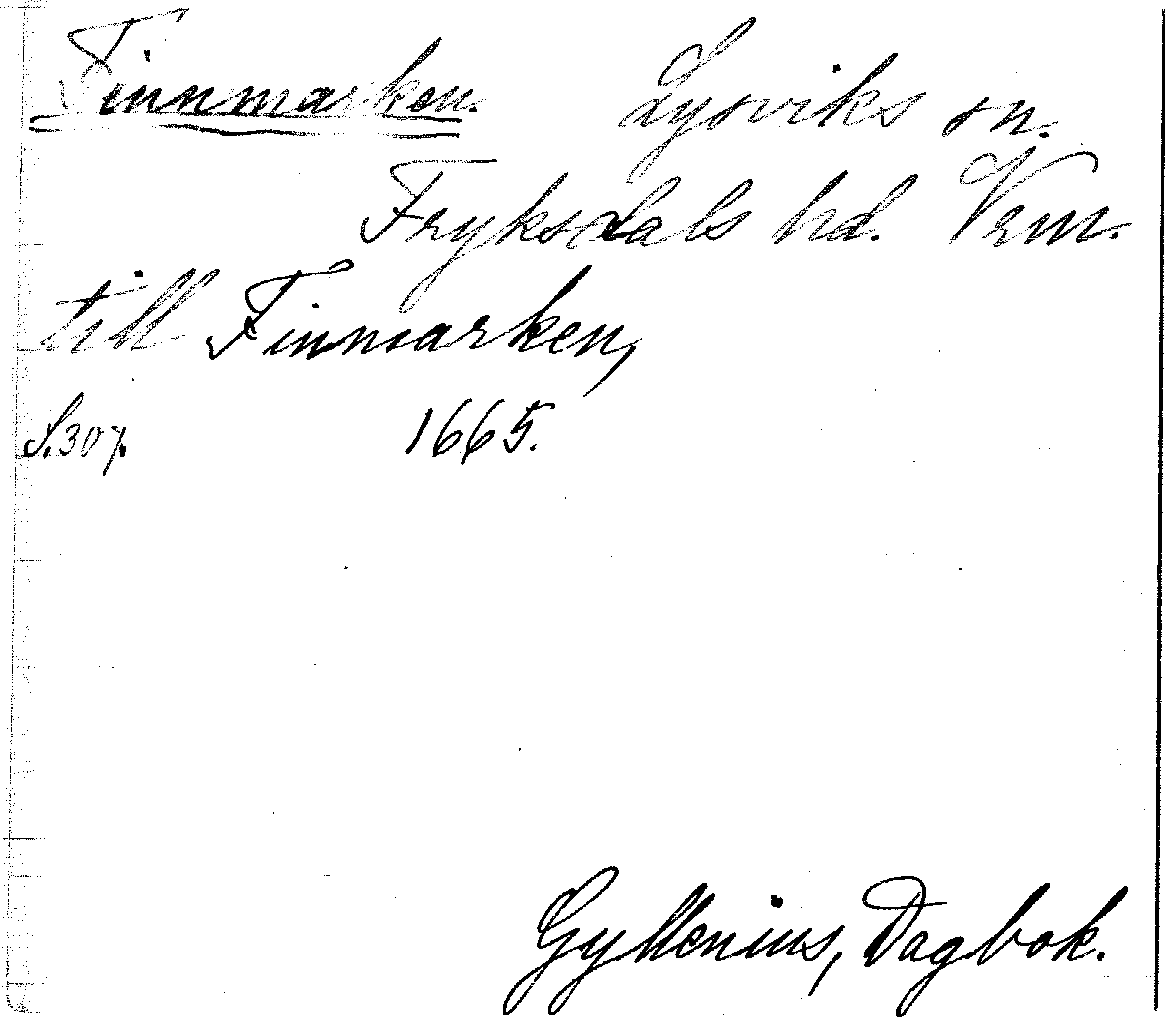 Finnmarken. Lysviks sn.
Fryksdals hd. Vrm.
till Finmarken,
S. 307. 1665.
Gyllenius, Dagbok.